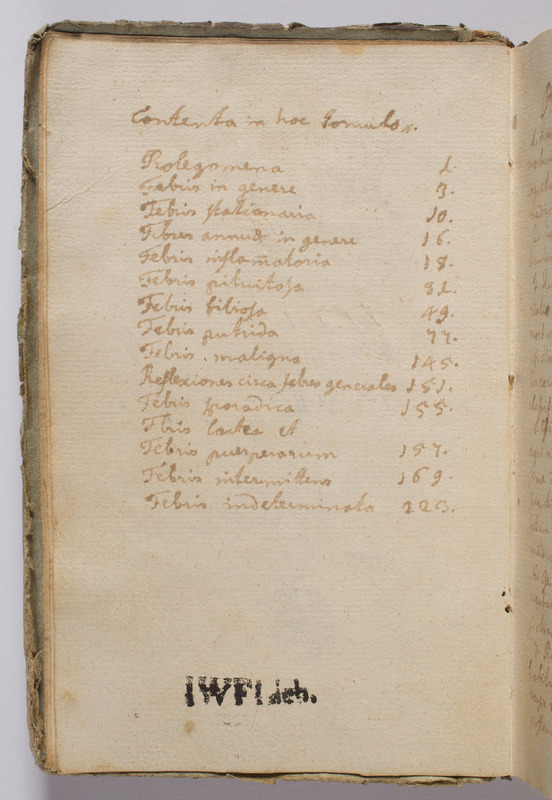 Contenta in hoc Tomulo.
Prolegomena 1.
Febris in genere 3.
Febris stationaria 10.
Febres annuæ in genere 16.
Febris inflam̄atoria 18.
Febris pituitosa 31.
Febris biliosa 49.
Febris putrida 77.
Febris maligna 145.
Reflexiones circa febres generales 151.
Febris sporadica 155.
Fbris lactea et
Febris puerperarum 157.
Febris intermittens 169.
Febris indeterminata 223.